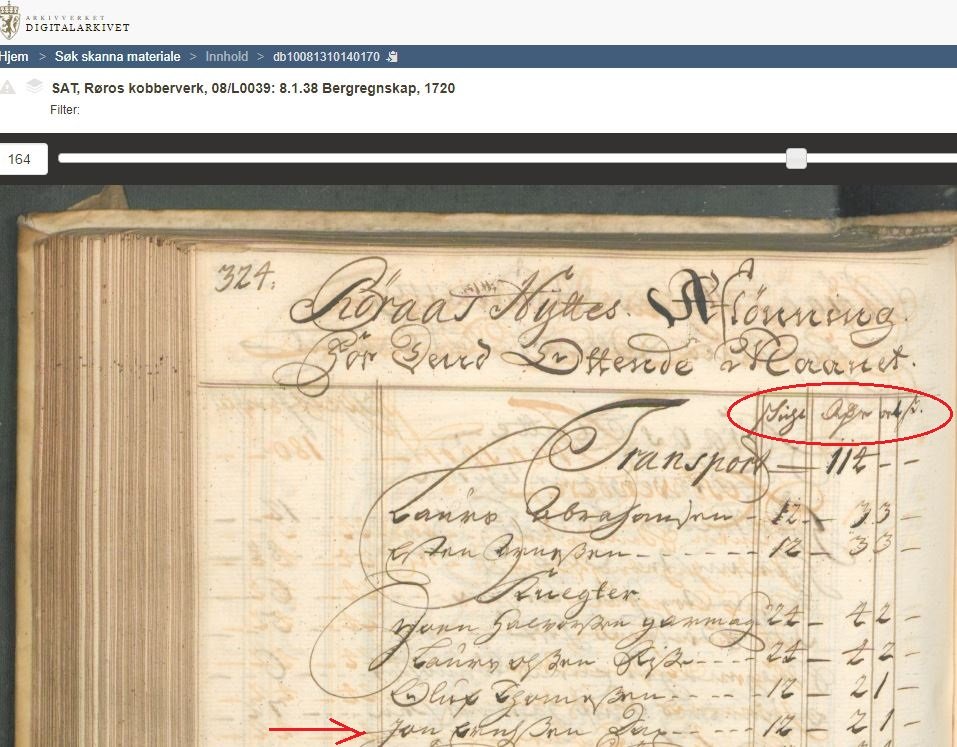 ARKIVVERKET
DIGITALARKIVET
Hjem > Søk skanna materiale > Innhold > db10081310140170
SAT, Røros kobberverk, 08/L0039: 8.1.38 Bergregnskap, 1720
Filter:
164
324.
Röraas Hyttes Aflönning
För Ottende Maanet.
Transport — 112 - -
Laurs Abrahamsen - 12 - 3 3 -
Esten - - - - - - 12 - 3 3 -
Knegter
Halvorsen 24 - 4 2 -
Laurs Olsen - - - - 24 - 4 2 -
Oluf Thomesen - - - - 12 - 2 1 -
Jon - - - 12 - 2 1 -